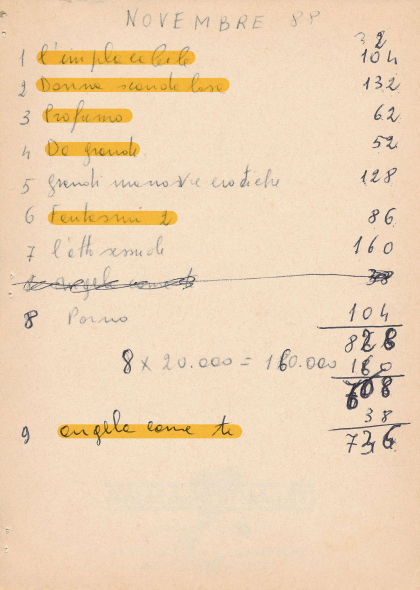 NOVEMBRE 88
32
1 l'implacabile 104
2 Donna scandalosa 132
3 Profumo 62
4 Da grande 52
5 grandi manovre erotiche 128
6 Fantasmi 2 86
7 l'atto sessuale 160
angela come te 38
8 Porno 104
828
8 x 20.000 = 160.000 160
38
9 angela come te 726